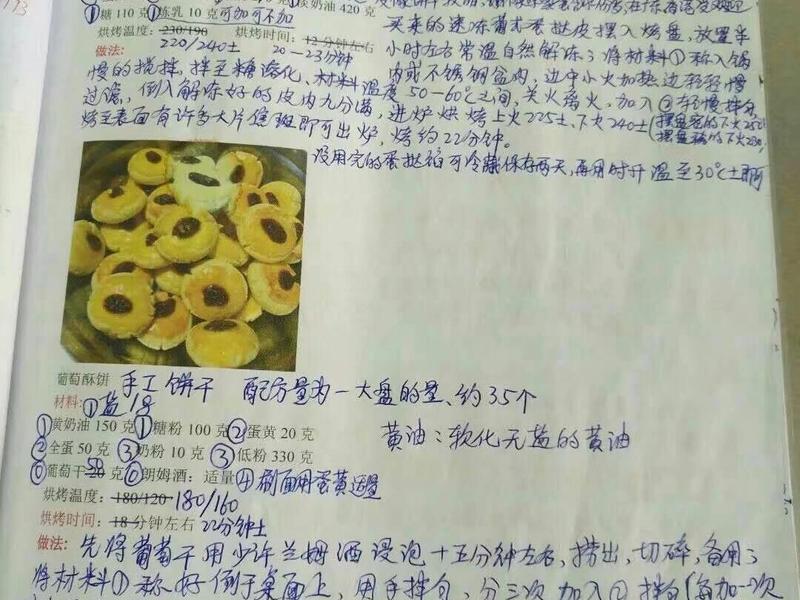 淡奶油 420 克
①糖 110 克 ①炼乳 10 克可加可不加
烘烤温度：230/190 烘烤时间：12 分钟左右
220/240± 20—23分钟
做法：
买来的速冻葡式蛋挞皮摆入烤盘，放置半
小时左右常温自然解冻；将材料①称入锅
内或不锈钢盆内，边中小火加热边轻轻慢
慢的搅拌，拌至糖溶化，材料温度50—60℃之间，关火离火，加入②轻慢拌匀，
过滤，倒入解冻好的皮内九分满，进炉烘烤上火225±、下火240±(摆盘密的下火250±
摆盘稀的下火230±
烤至表面有许多大片焦斑即可出炉，烤约22分钟。
没用完的蛋挞馅可冷藏保存两天，再用时升温至30℃±即可
葡萄酥饼 手工饼干 配方量为一大盘的量、约35个
材料：①盐1g
①黄奶油 150 克 ①糖粉 100 克 ②蛋黄 20 克
黄油：软化无盐的黄油
②全蛋 50 克 ③奶粉 10 克 ③低粉 330 克
⓪葡萄干 20 50 克 ⓪朗姆酒：适量 ④刷面用蛋黄适量
烘烤温度：180/120 180/160
烘烤时间：18分钟左右 22分钟±
做法：先将葡萄干用少许兰姆酒浸泡十五分钟左右，捞出，切碎，备用；
将材料①称好倒于桌面上，用手拌匀，分三次加入②拌匀(每加一次